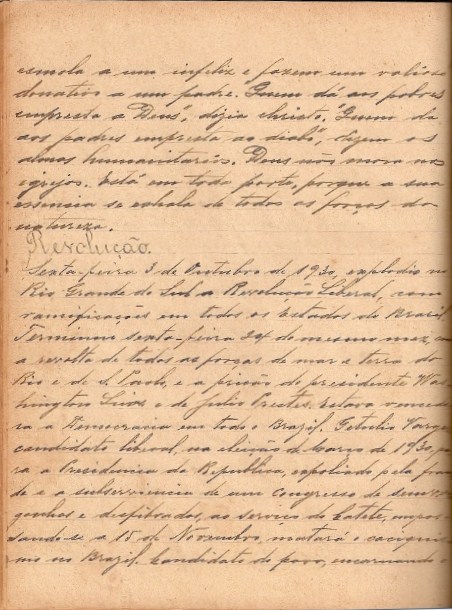 esmola a um infeliz e fazem um valioso
donativo a um padre. "Quem dá aos pobres
empresta a Deus", dizia Christo. "Quem dá
aos padres empresta ao diabo", dizem os
almas humanitarias. Deus não mora nas
egrejas. Está em toda parte, porque a sua
essencia se exhala de todas as forças da
natureza.
Revolução.
Sexta-feira 3 de Outubro de 1930, explodio no
Rio Grande do Sul a Revolução Liberal, com
ramificações em todos os Estados do Brazil.
Terminou sexta-feira 24 do mesmo mez, com
a revolta de todas as forças de mar e terra do
Rio e de S. Paulo, e a prisão do presidente Was-
hington Luis e de Julio Prestes. Estava vencedo
ra a Democracia em todo o Brazil. Getulio Vargas
candidato liberal, na eleição de Março de 1930, pa
ra a Presidencia da Republica, espoliado pela frau
de e a subserviencia de um congresso de semver
gonhas e desfibrados, ao serviço do Catete, empos
sando-se a 15 de Novembro, matará o caciquis
mo no Brazil. Candidato do povo, encarnando o